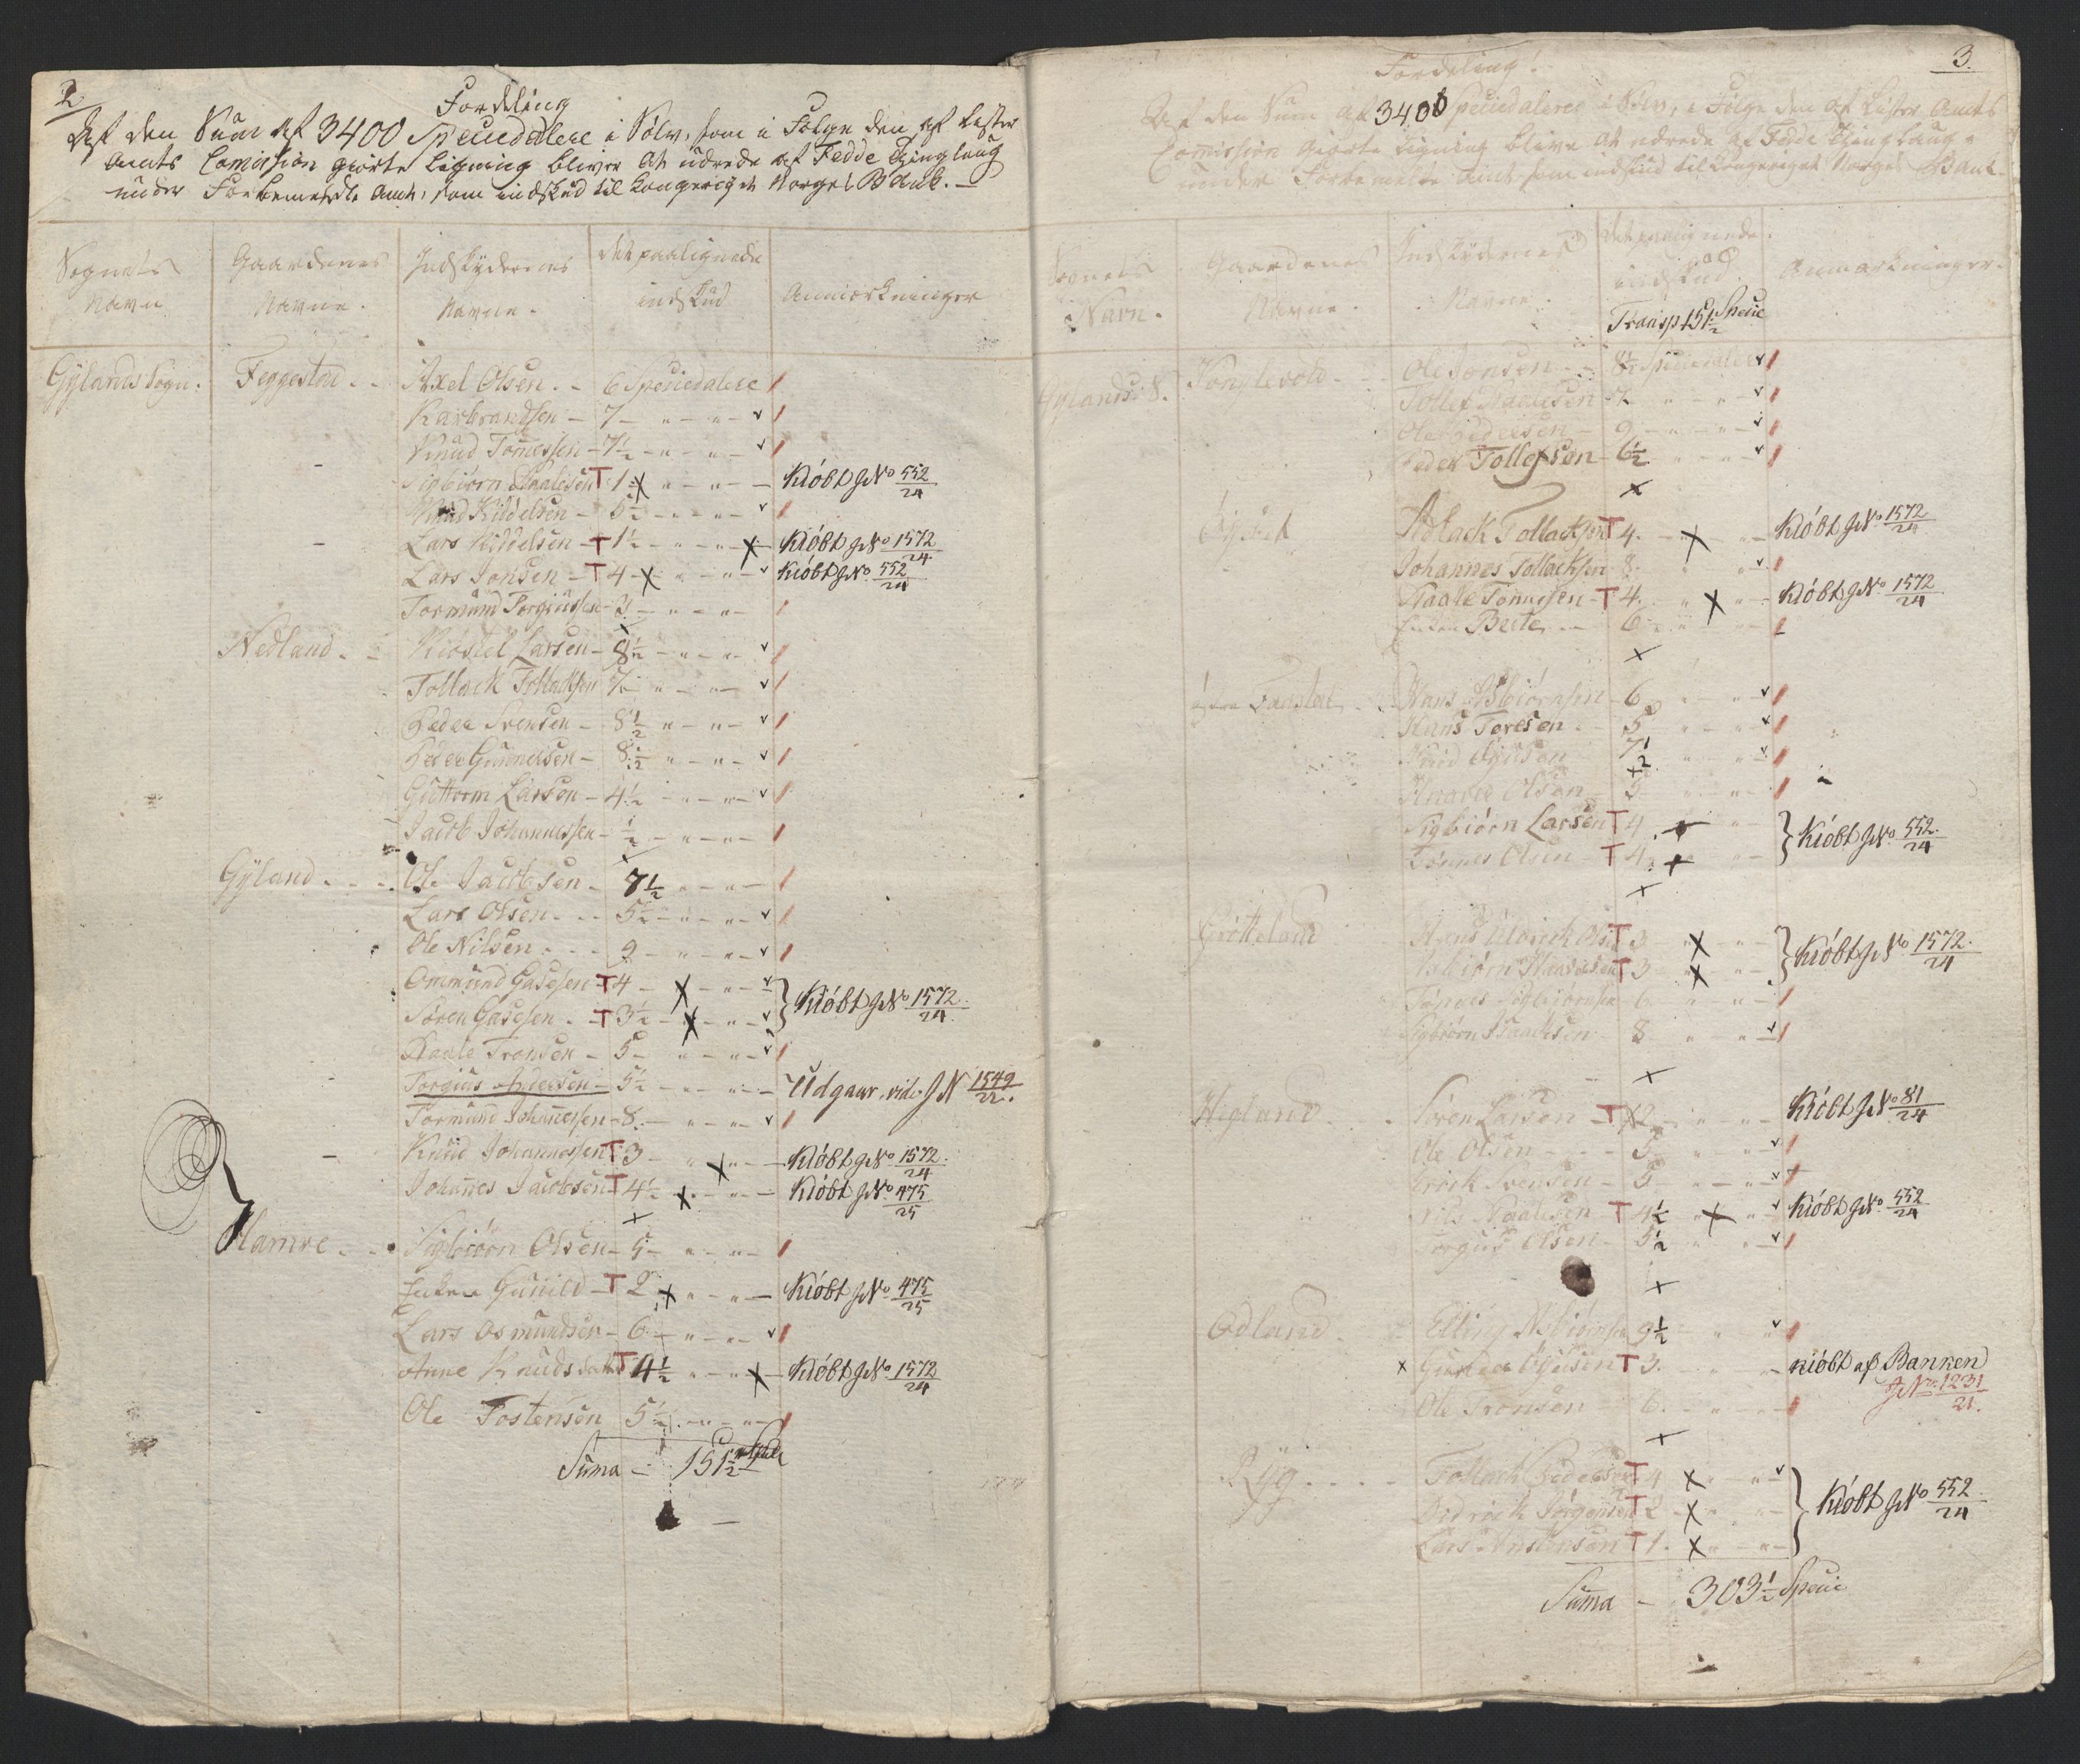 2
Fordeling
Af den Sum af 3400 Speciedalere i Sølv, som i Følge den af Lister
Amts Comission giorte Ligning bliver at udrede af Fedde Tinglaug
under Forbemeldte Amt, som indskud til Kongeriget Norges Bank.
Sognets Navn
Gaardenes Navne.
Indskydernes Navne.
Det paalignede indskud
Anmærkninger
Gylands Sogn. Feggestad Axel Olsen 6 Speciedalere
Karbrandsen 7
Knud Tønnessen 7 1/2
Sigbiørn Staalesen T 1 Kiøbt J No 552/24
Knud Kiddelsen 6 1/2
Lars Kiddelsen T 1 1/2 Kiøbt J No 1572/24
Lars Jonsen T 4 Kiøbt J No 552/24
Tormund Torgiussen 3
Nedland Kiøstel Larsen 8 1/2
Tollack Tollacksen 7
Peder Svensen 8 1/2
Peder Gunnersen 8 1/2
Guttorm Larsen 4 1/2
Jacob Johannessen 1/2
Gyland Ole Jacobsen 7 1/2
Lars Olsen 5 1/2
Ole Nilsen 9
Ommund Gasesen T 4
Søren Gasesen T 3 1/2 } Kiøbt J No 1572/24
Staale Tronsen 5
Torgius Andersen 5 1/2 Udgaar, vide J N 1549/22.
Tormund Johannessen 8
Knud Johannessen T 3 Kiøbt J No 1572/24
Johannes Jacobsen T 4 1/2 Kiøbt J No 475/25
Hamre Sigbiørn Olsen 5
Enken Gunild T 2 Kiøbt J No 475/25
Lars Osmundsen 6
Anne Knudsdatter T 4 1/2 Kiøbt J No 1572/24
Ole Tostensen 5 1/2
Suma 151 1/2 Specie
3.
Fordeling
Af den Sum af 3400 Speciedalere i Sølv, i Følge den af Lister Amts
Comission giorte Ligning bliver at udrede af Fedde Tinglaug
under Forbemeldte Amt som indskud til Kongeriget Norges Bank
Sognets Navn.
Gaardenes Navne.
Indskydernes Navne.
Det paalignede indskud.
Anmærkninger.
Transp 151 1/2 Specie
Gylands S. Konglevold Ole Jonsen 8 1/2 Speciedaler
Tollef Staalesen 7
Ole Pedersen 9
Peder Tollefsen 6 1/2
Aslack Tollacksen T 4. Kiøbt J No 1572/24
Johannes Tollacksen 8.
Staale Tønnesen T 4. Kiøbt J No 1572/24
Enken Berte 6
Hans Asbiørnsen 6
Hans Toresen 5
7 1/2
Olsen 5
Sigbiørn Larsen T 4
Tønnes Olsen T 4 } Kiøbt J No 552/24
Grøtteland Hans Uldrick Olsen T 3
T 3 } Kiøbt J No 1572/24
Tønnes Sigbiørnsen 6
Sigbiørn Staalesen 8
Høgland Søren Larsen T 2 Kiøbt J No 81/24
Ole Olsen 5
Svensen 5
Nils Staalesen T 4 1/2 Kiøbt J No 552/24
Torgius Olsen 5 1/2
Ødland Elling Asbiørnsen 9 1/2
T 3. Kiøbt af Banken J No 1231/21.
Ole Tronsen 6.
Ryg Tollack Pedersen T 4
Didrick Jørgensen T 2
Lars Anstensen T 1. } Kiøbt J No 552/24
Suma 303 1/2 Specie